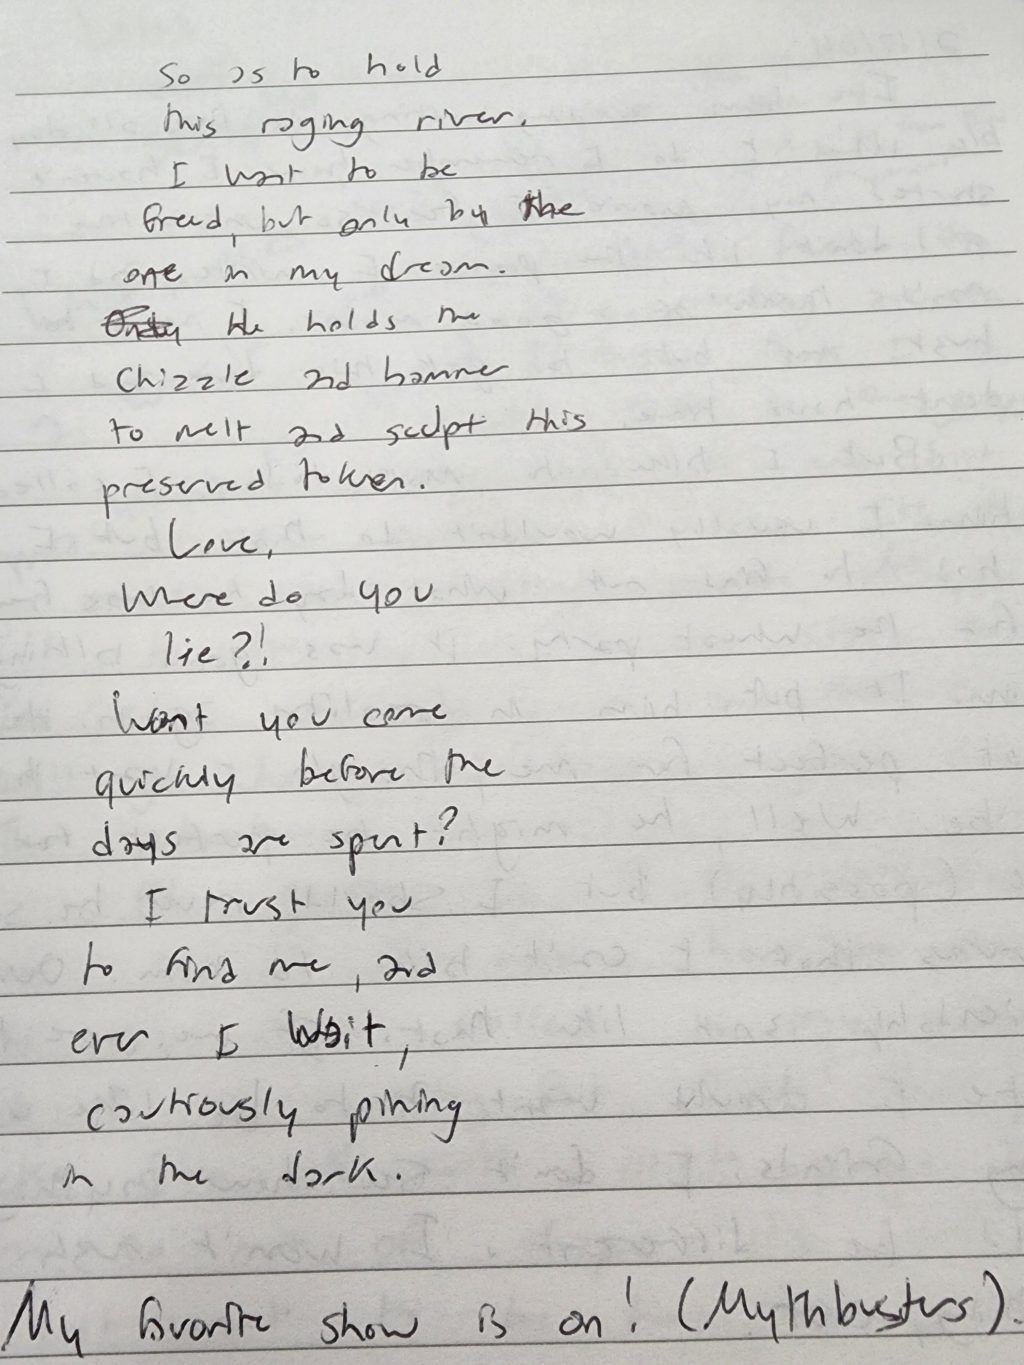 So as to hold
this raging river.
I want to be
freed, but only by the
one in my dream.
He holds the
Chizzle and hammer
to melt and sculpt this
preserved token.
Love,
Where do you
lie?!
Wont you come
quickly before the
days are spent?
I trust you
to find me, and
ever I wait,
cautiously pining
in the dark.
My favorite show is on! (Mythbusters).